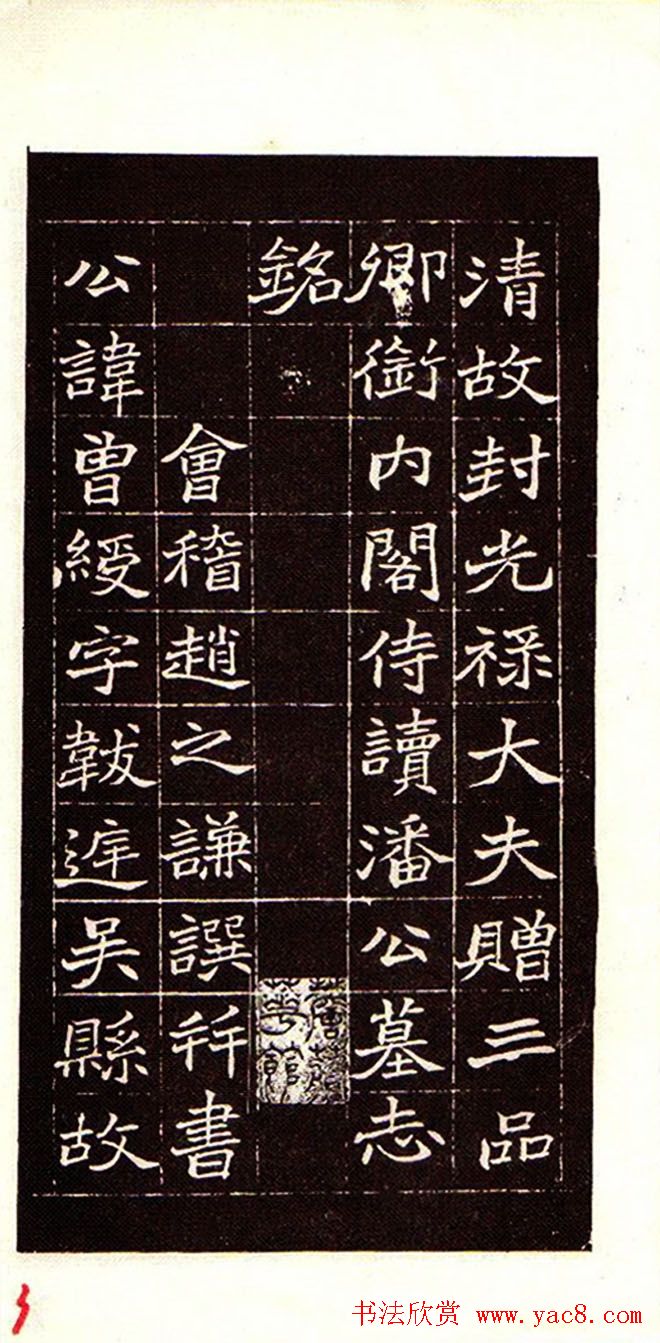 清故封光祿大夫贈三品
卿銜内閣侍讀潘公墓志
銘
會稽趙之謙撰并書
公諱曾綬字韍庭吳縣故
书法欣赏 www.yac8.com